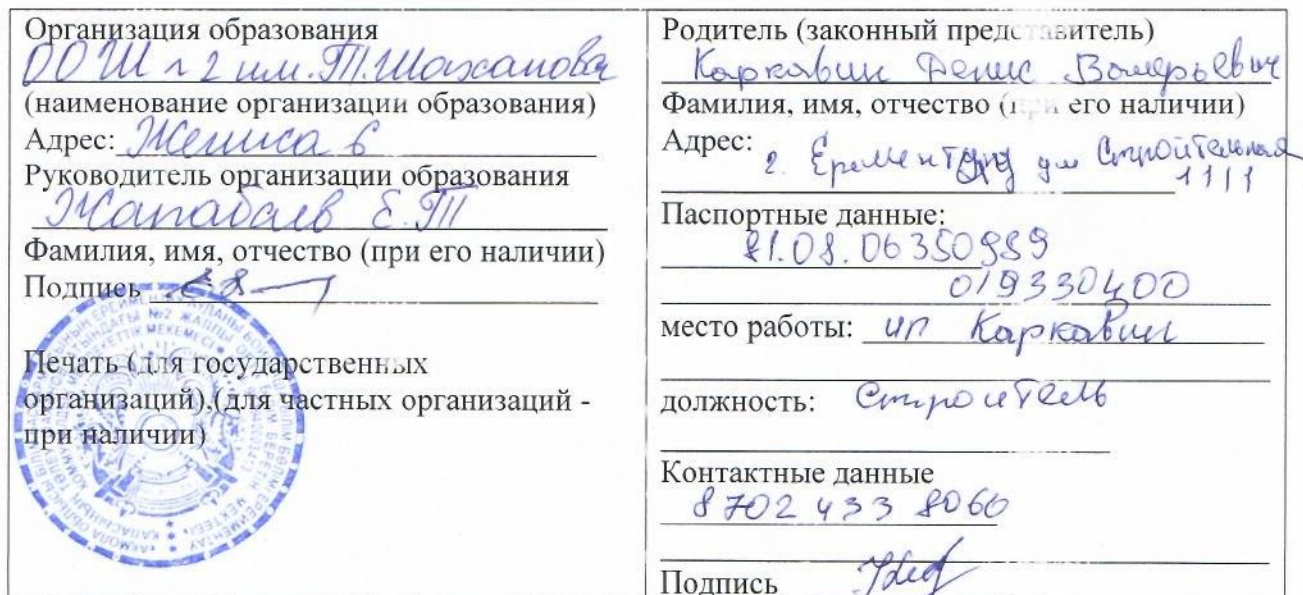 Организация образования
ООШ №2 им. Т. Шаханова
(наименование организации образования)
Адрес: Жениса 6
Руководитель организации образования
Жапабаев Е.Т
Фамилия, имя, отчество (при его наличии)
Подпись
Печать (для государственных
организаций),(для частных организаций -
при наличии)
Родитель (законный представитель)
Каркавин Денис Валерьевич
Фамилия, имя, отчество (при его наличии)
Адрес:
г. Ерементау ул Строительная
1111
Паспортные данные:
81.08.06350989
019330400
место работы: ип Каркавин
должность: Строитель
Контактные данные
8 702 433 8060
Подпись